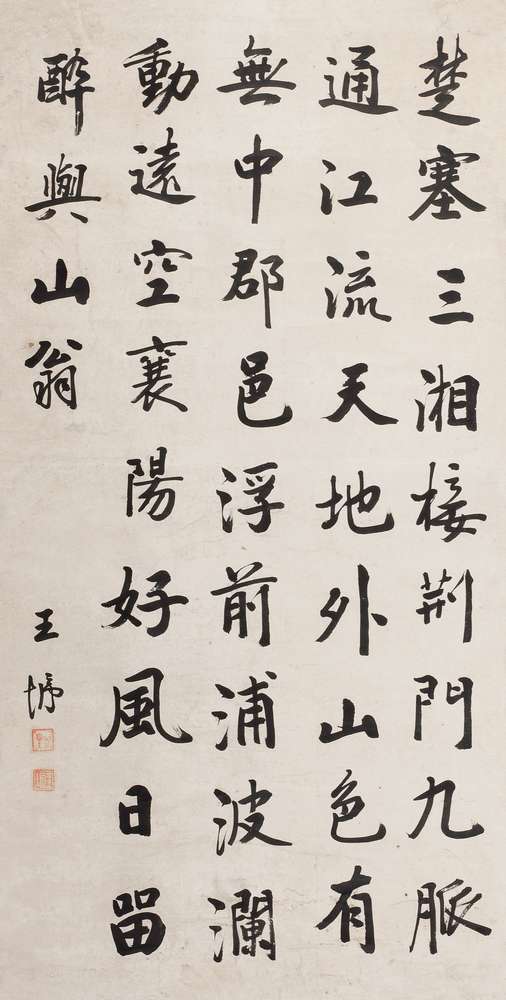 楚塞三湘接荆門九脈
通江流天地外山色有
無中郡邑浮前浦波瀾
動遠空襄陽好風日留
醉與山翁
王